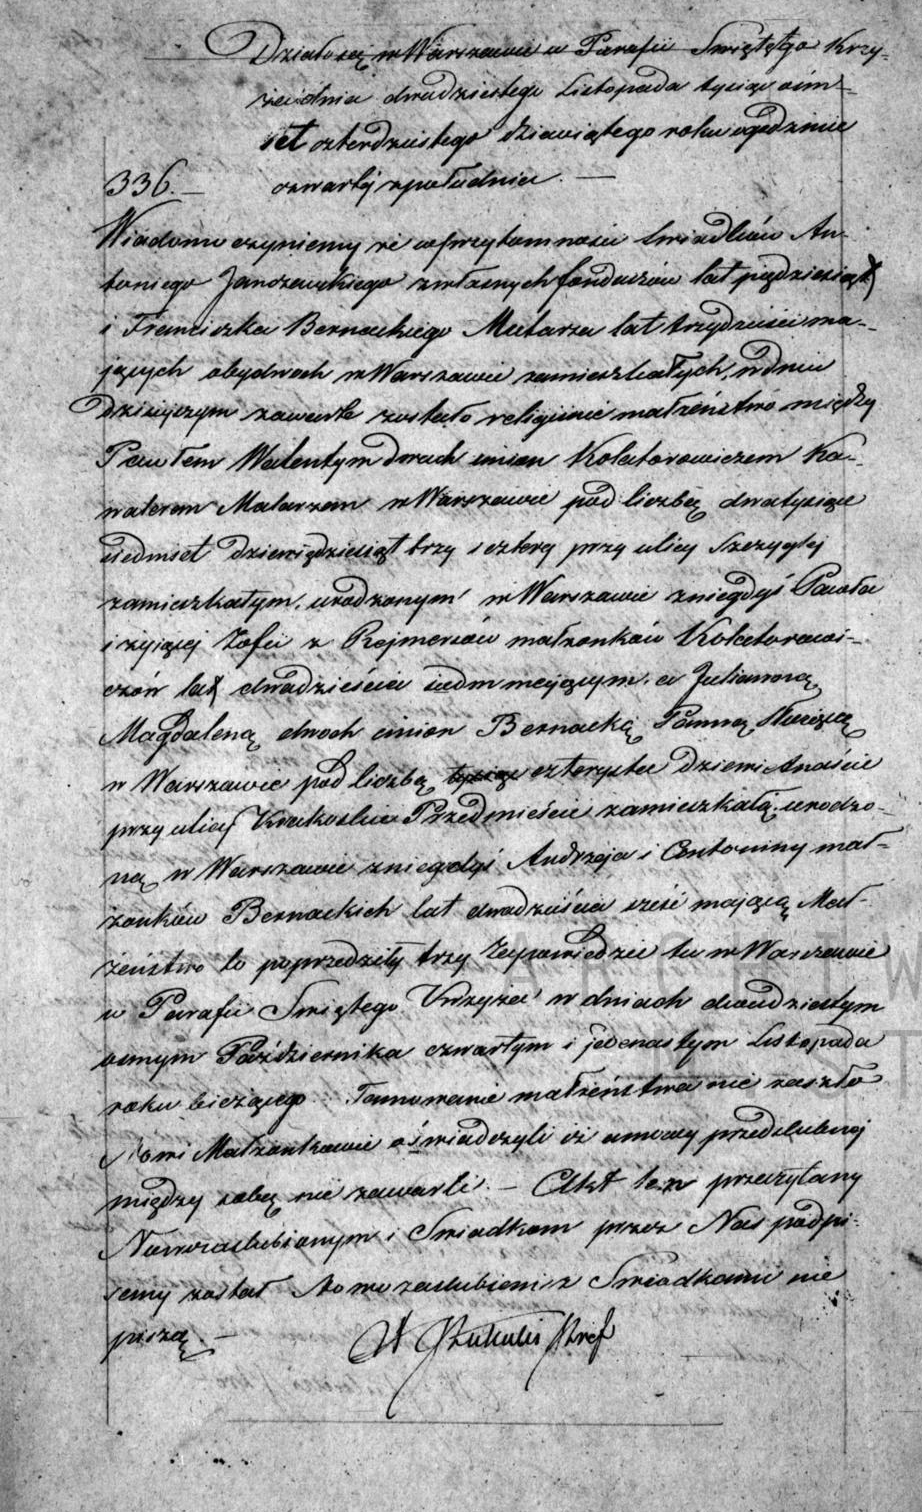 Działo się w Warszawie w Parafii Świętego Krzy-
ża dnia dwudziestego Listopada tysiąc ośm-
set czterdziestego dziewiątego roku o godzinie
336. — czwartej z południa. —
Wiadomo czyniemy że w przytomności świadków An-
toniego Janczewskiego z własnych funduszów lat pięćdziesiąt
i Franciszka Bernackiego Mularza lat trzydzieści ma-
jących obydwóch w Warszawie zamieszkałych, w dniu
dzisiejszym zawarte zostało religijnie małżeństwo między
Pawłem Walentym dwóch imion Kolatorowiczem Ka-
walerem Malarzem w Warszawie pod liczbą dwa tysiące
siedmset dziewięćdziesiąt trzy i cztery przy ulicy Szczyglej
zamieszkałym, urodzonym w Warszawie z niegdyś Pawła
i żyjącej Zofii z małżonków Kolatorowi-
czów lat dwadzieścia siedm mającym, a Julianną
Magdaleną dwóch imion Bernacką Panną Służącą
w Warszawie pod liczbą tysiąc czterysta dziewiętnaście
przy ulicy Krakowskie Przedmieście zamieszkałą, urodzo-
ną w Warszawie z niegdyś Andrzeja i Antoniny mał-
żonków Bernackich lat dwadzieścia sześć mającą Mał-
żeństwo to poprzedziły trzy Zapowiedzie tu w Warszawie
w Parafii Świętego Krzyża w dniach dwudziestym
ósmym Października czwartym i jedenastym Listopada
roku bieżącego. Tamowanie małżeństwa nie zaszło
Nowi Małżonkowie oświadczyli iż umowy przedślubnej
między sobą nie zawarli. — Akt ten przeczytany
Nowozaślubionym i Świadkom przez Nas podpi-
sany został Nowozaślubieni z Świadkami nie
piszą. —